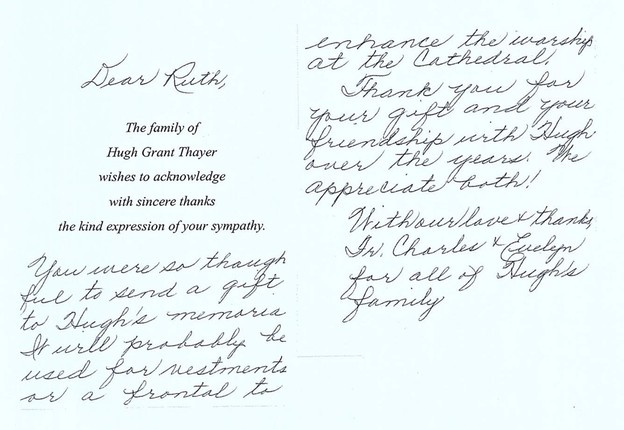 Dear Ruth,
The family of
Hugh Grant Thayer
wishes to acknowledge
with sincere thanks
the kind expression of your sympathy.
You were so though
ful to send a gift
to Hugh's memoria
It will probably be
used for vestments
or a frontal to
enhance the worship
at the Cathedral.
Thank you for
your gift and your
friendship with Hugh
over the years. We
appreciate both!
With our love & thanks,
Fr. Charles & Evelyn
for all of Hugh's
family